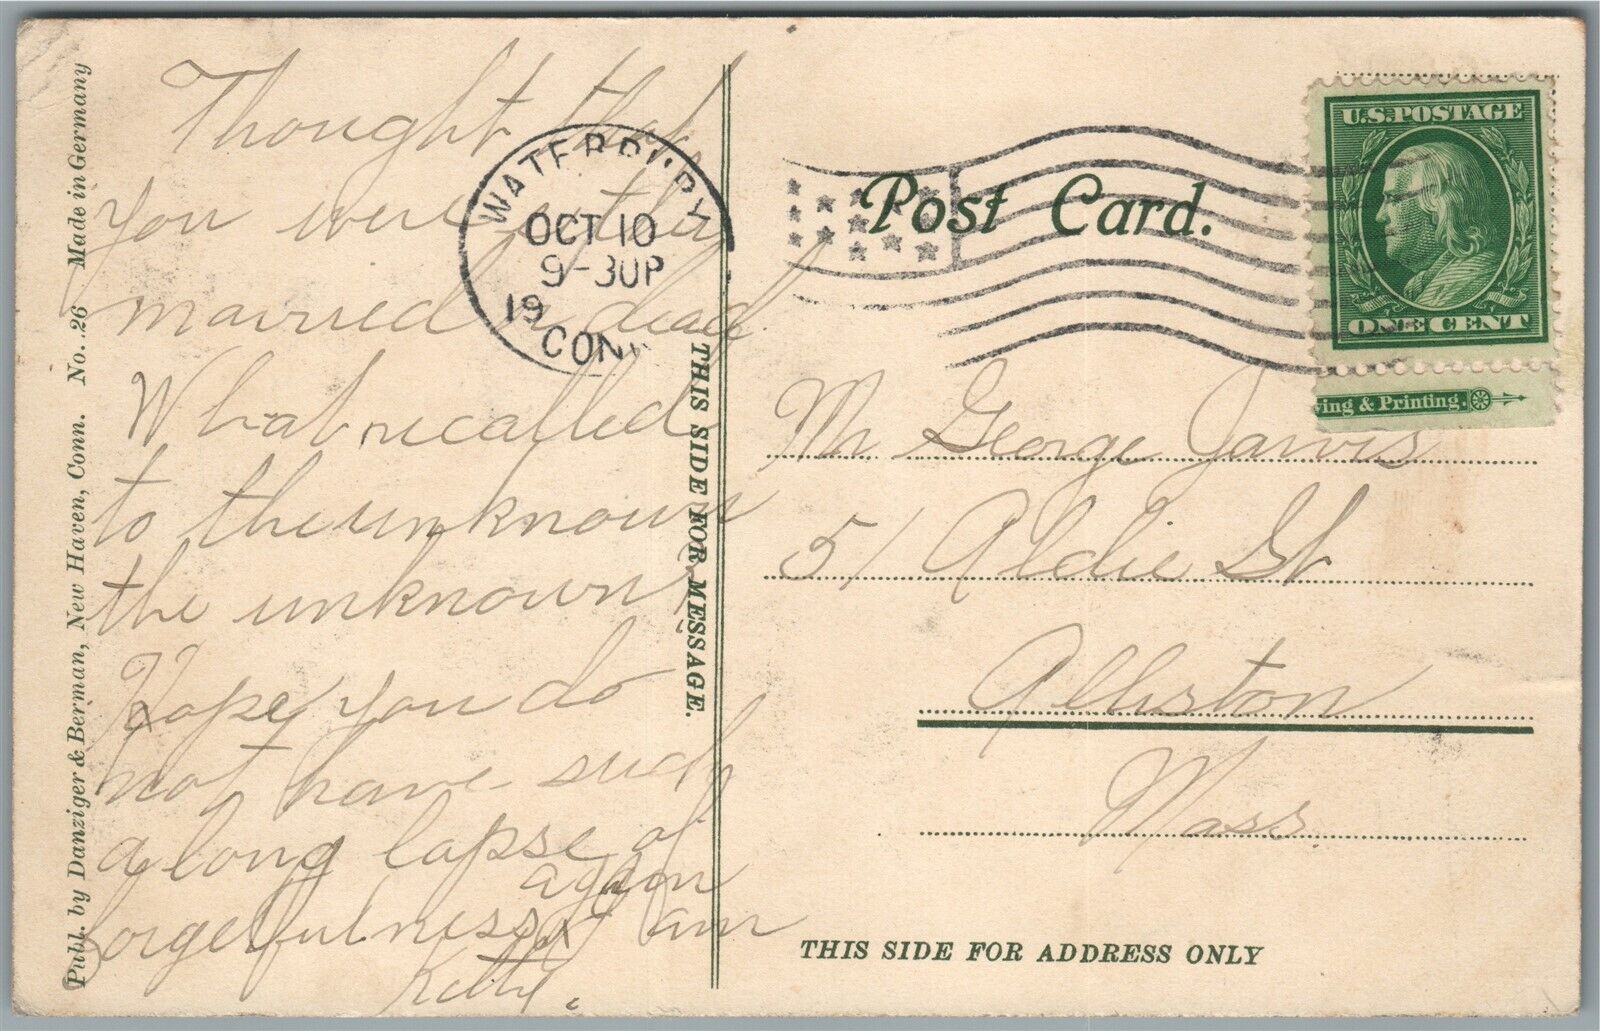 Publ. by Danziger & Berman, New Haven, Conn. No..26 Made in Germany
Thought that
you were either
married or dead
What recalled
to the unknown
the unknown?
Hope you do
not have such
a long lapse of
forgetfulness again
I am
Kitty.
THIS SIDE FOR MESSAGE.
WATERBURY
OCT 10
9-30P
19
CONN
Post Card.
U.S.POSTAGE
ONE CENT
ving & Printing.
Mr. George Jarvis
51 Aldie St
Allston
Mass.
THIS SIDE FOR ADDRESS ONLY